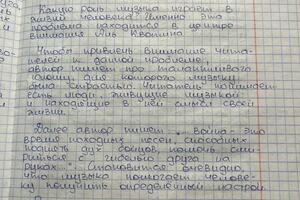 Какую роль музыка играет в
жизни человека? Именно эта
проблема находится в центре
внимания Льва Квонина
Чтобы привлечь внимание чита-
телей к данной проблеме,
автор пишет про талантливого
юношу, для которого музыка
была страстью. Читатель понимает
есть люди, живущие музыкой
и находящие в ней смысл своей
жизни.
Далее автор пишет: „война - это
время походных песен, способных
поднять дух бойцов, помочь сми-
риться с гибелью друга на
руках". Становится очевидно,
что музыка помогает челове-
ку получить определённый настрой.